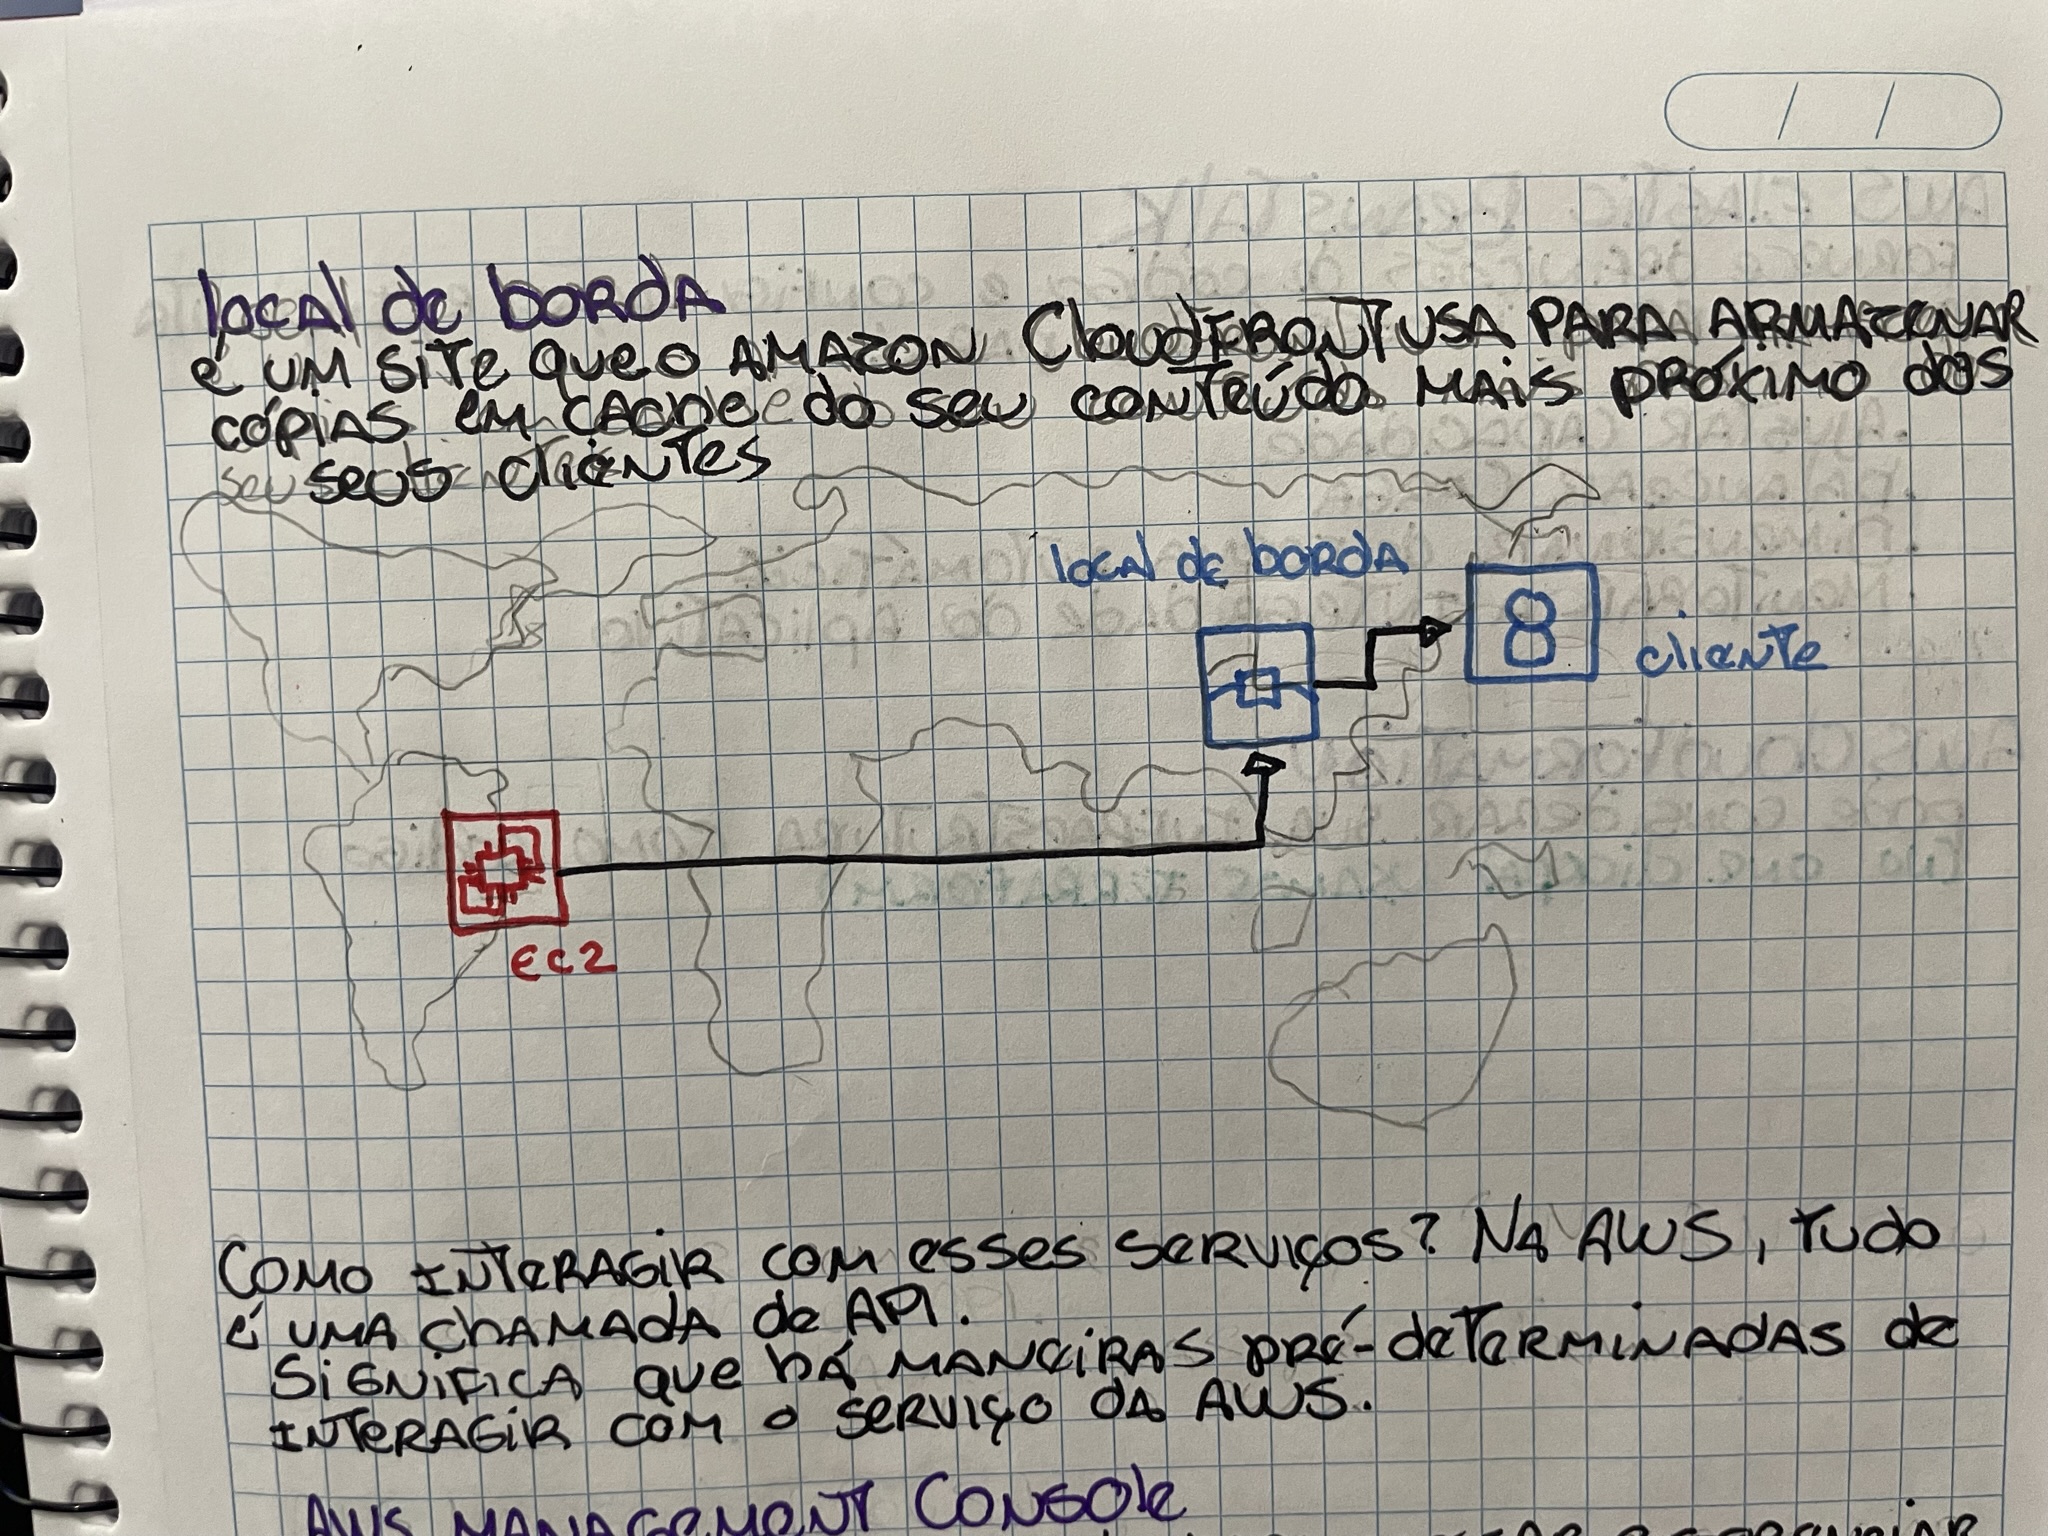 local de borda
é um site que o Amazon CloudFront usa para armazenar
cópias em cache do seu conteúdo mais próximo dos
seus clientes
local de borda
8
cliente
EC2
Como interagir com esses serviços? Na AWS, tudo
é uma chamada de API.
Significa que há maneiras pré-determinadas de
interagir com o serviço da AWS.
AWS Management Console